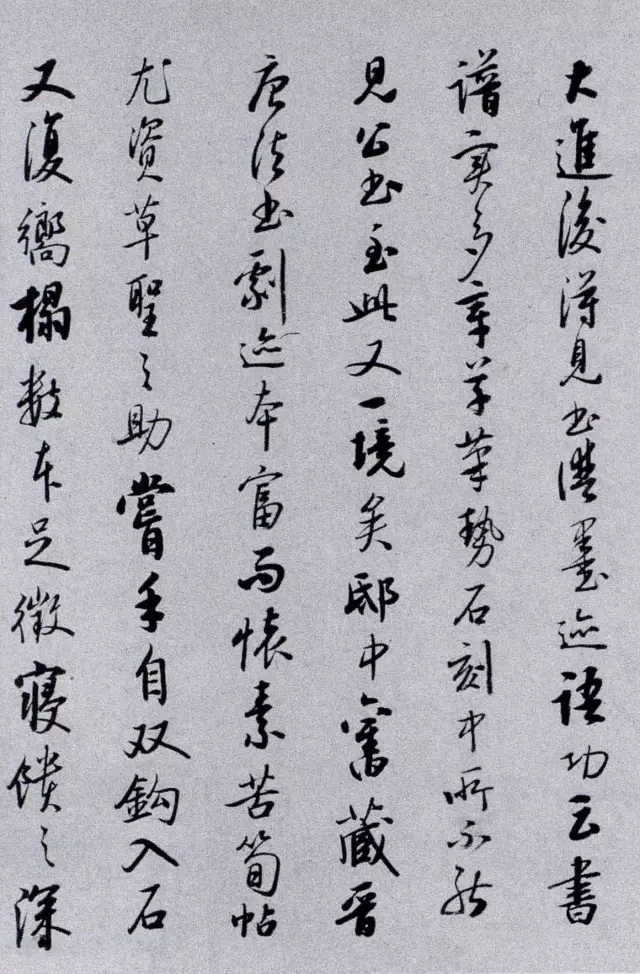 大進後得見書譜墨迹語功云書
譜實多章草筆勢石刻中所不能
見公書至此又一境矣邸中舊藏晉
唐法書劇迹本富而懷素苦筍帖
尤資草聖之助嘗手自双鈎入石
又復嚮榻数本足徵寢饋之深